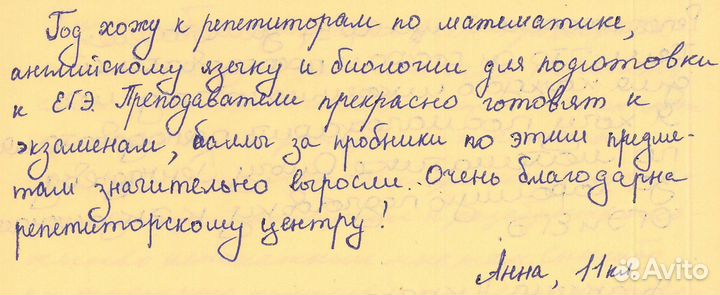 Год хожу к репетиторам по математике,
английскому языку и биологии для подготовки
к ЕГЭ. Преподаватели прекрасно готовят к
экзаменам, баллы за пробники по этим предме-
там значительно выросли. Очень благодарна
репетиторскому центру!
Анна, 11кл
Avito